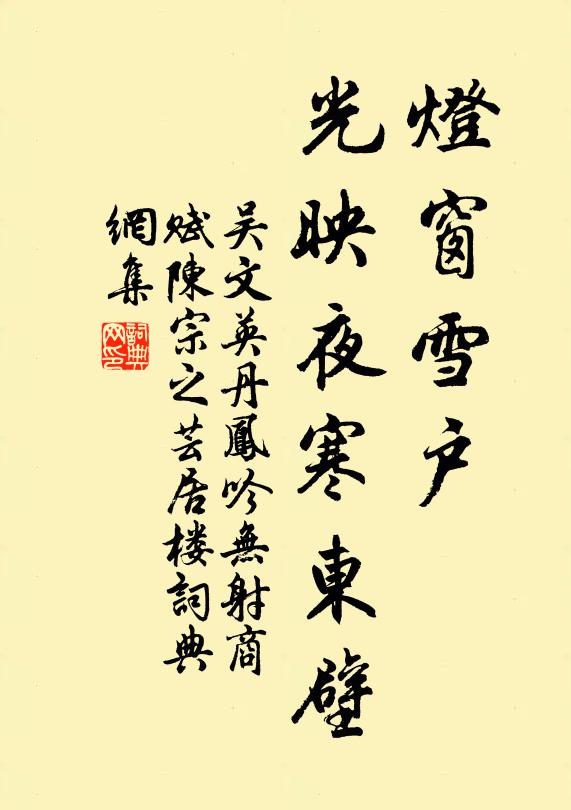 燈窗雪户
光映夜寒東壁
吴文英丹鳳吟無射商
赋陳宗之芸居楼詞典
網集
詞典网印